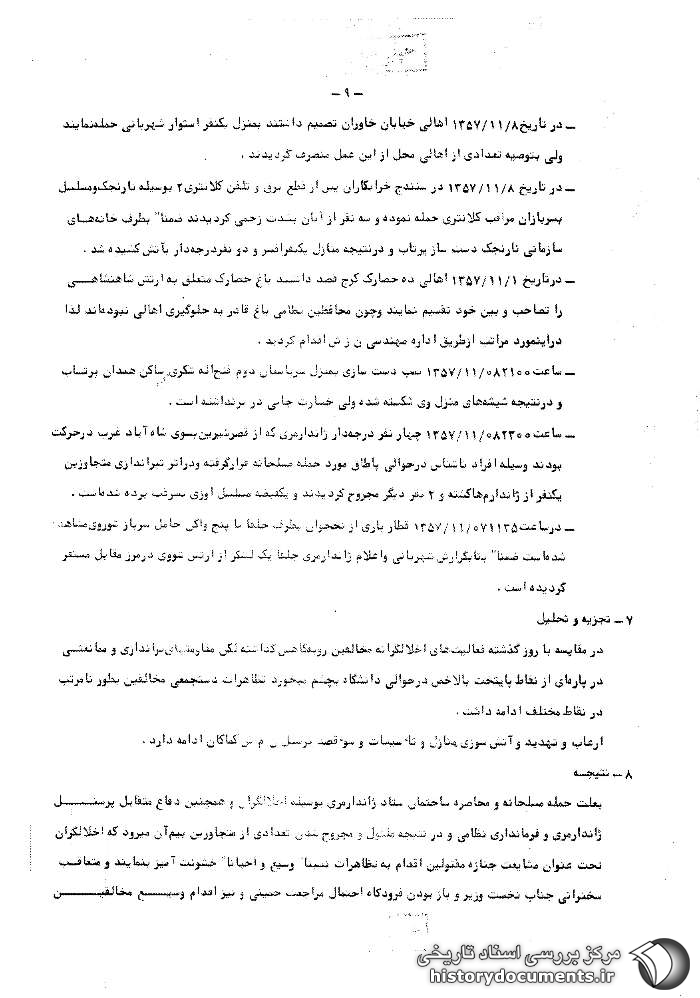 - ۹ -
ـ در تاریخ ۱۳۵۷/۱۱/۸ اهالی خیابان خاوران تصمیم داشتند بمنزل یکنفر استوار شهربانی حمله نمایند
ولی بتوصیه تعدادی از اهالی محل از این عمل منصرف گردیدند .
ـ در تاریخ ۱۳۵۷/۱۱/۸ در سنندج خرابکاران پس از قطع برق و تلفن کلانتری ۲ بوسیله نارنجک و مسلسل
بسربازان مراقب کلانتری حمله نموده و سه نفر از آنان بشدت زخمی گردیدند ضمنا" بطرف خانه‌های
سازمانی نارنجک دست ساز پرتاب و درنتیجه منازل یکنفر افسر و دو نفر درجه‌دار بآتش کشیده شد .
ـ درتاریخ ۱۳۵۷/۱۱/۱ اهالی ده حصارک کرج قصد داشتند باغ حصارک متعلق به ارتش شاهنشاهی
را تصاحب و بین خود تقسیم نمایند وچون محافظین نظامی باغ قادر به جلوگیری اهالی نبوده‌اند لذا
دراینمورد مراتب ازطریق اداره مهندسی ن ز ش اقدام گردید .
ـ ساعت ۱۳۵۷/۱۱/۰۸۲۱۰۰ بمب دست سازی بمنزل ستوان دوم فتح‌اله شکری ساکن همدان پرتاب
و درنتیجه شیشه‌های منزل وی شکسته شده ولی خسارت جانی در برنداشته است .
ـ ساعت ۱۳۵۷/۱۱/۰۸۲۳۰۰ چهار نفر درجه‌دار ژاندارمری که از قصرشیرین بسوی شاه آباد غرب درحرکت
بودند وسیله افراد ناشناس درحوالی پاطاق مورد حمله مسلحانه قرارگرفته ودراثر تیراندازی متجاوزین
یکنفر از ژاندارم‌ها کشته و ۲ نفر دیگر مجروح گردیدند و یکقبضه مسلسل اوزی بسرقت برده شده‌است .
ـ درساعت ۱۳۵۷/۱۱/۰۷۱۱۳۵ قطار باری از نخجوان بطرف جلفا با پنج واگن حامل سرباز شوروی مشاهده
شده‌است ضمنا" بنابگزارش شهربانی واعلام ژاندارمری جلفا یک لشکر از ارتش شوروی درمرز مقابل مستقر
گردیده است .
۷ ـ تجزیه و تحلیل
در مقایسه با روز گذشته فعالیت‌های اخلالگرانه مخالفین روبکاهش گذاشته لکن
در پاره‌ای از نقاط پایتخت بالاخص درحوالی دانشگاه بچشم میخورد تظاهرات دستجمعی مخالفین بطور نامرتب
در نقاط مختلف ادامه داشت .
ارعاب و تهدید و آتش سوزی منازل و تأسیسات و سوءقصد بپرسنل کماکان ادامه دارد .
۸ ـ نتیجه
بعلت حمله مسلحانه و محاصره ساختمان ستاد ژاندارمری بوسیله اخلالگران و همچنین دفاع متقابل پرسنل
ژاندارمری و فرمانداری نظامی و در نتیجه مقتول و مجروح شدن تعدادی از متجاوزین بیم آن میرود که اخلالگران
تحت عنوان مشایعت جنازه مقتولین اقدام به تظاهرات نسبتا" وسیع و احیانا" خشونت آمیز بنمایند و متعاقب
سخنرانی جناب نخست وزیر و باز بودن فرودگاه احتمال مراجعت خمینی و نیز اقدام وسیع مخالفین
مرکز بررسی اسناد تاریخی
historydocuments.ir